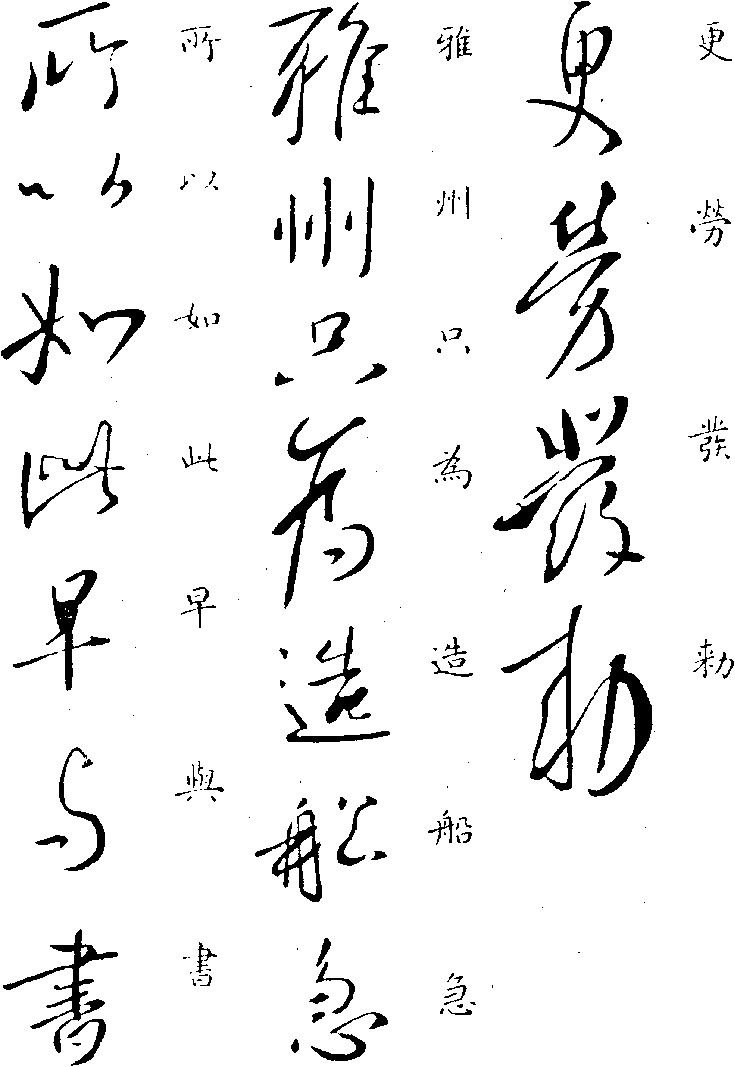 更勞發勅
更勞發勅
雅州只為造船急
雅州只為造船急
所以如此早與書
所以如此早與書